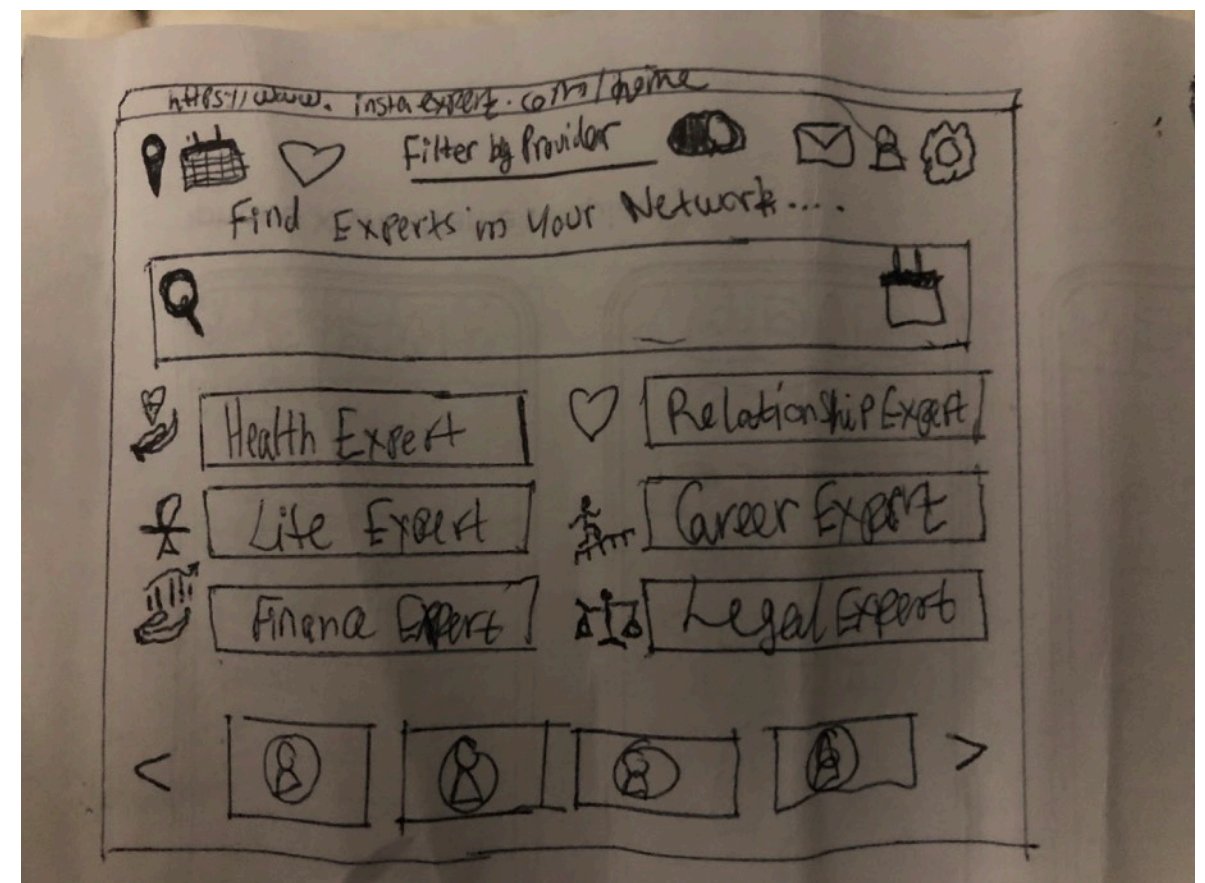 https://www.instaexpert.com/home
Filter by Provider
Find Experts in Your Network....
Health Expert
Relationship Expert
Life Expert
Career Expert
Finance Expert
Legal Expert
<
>